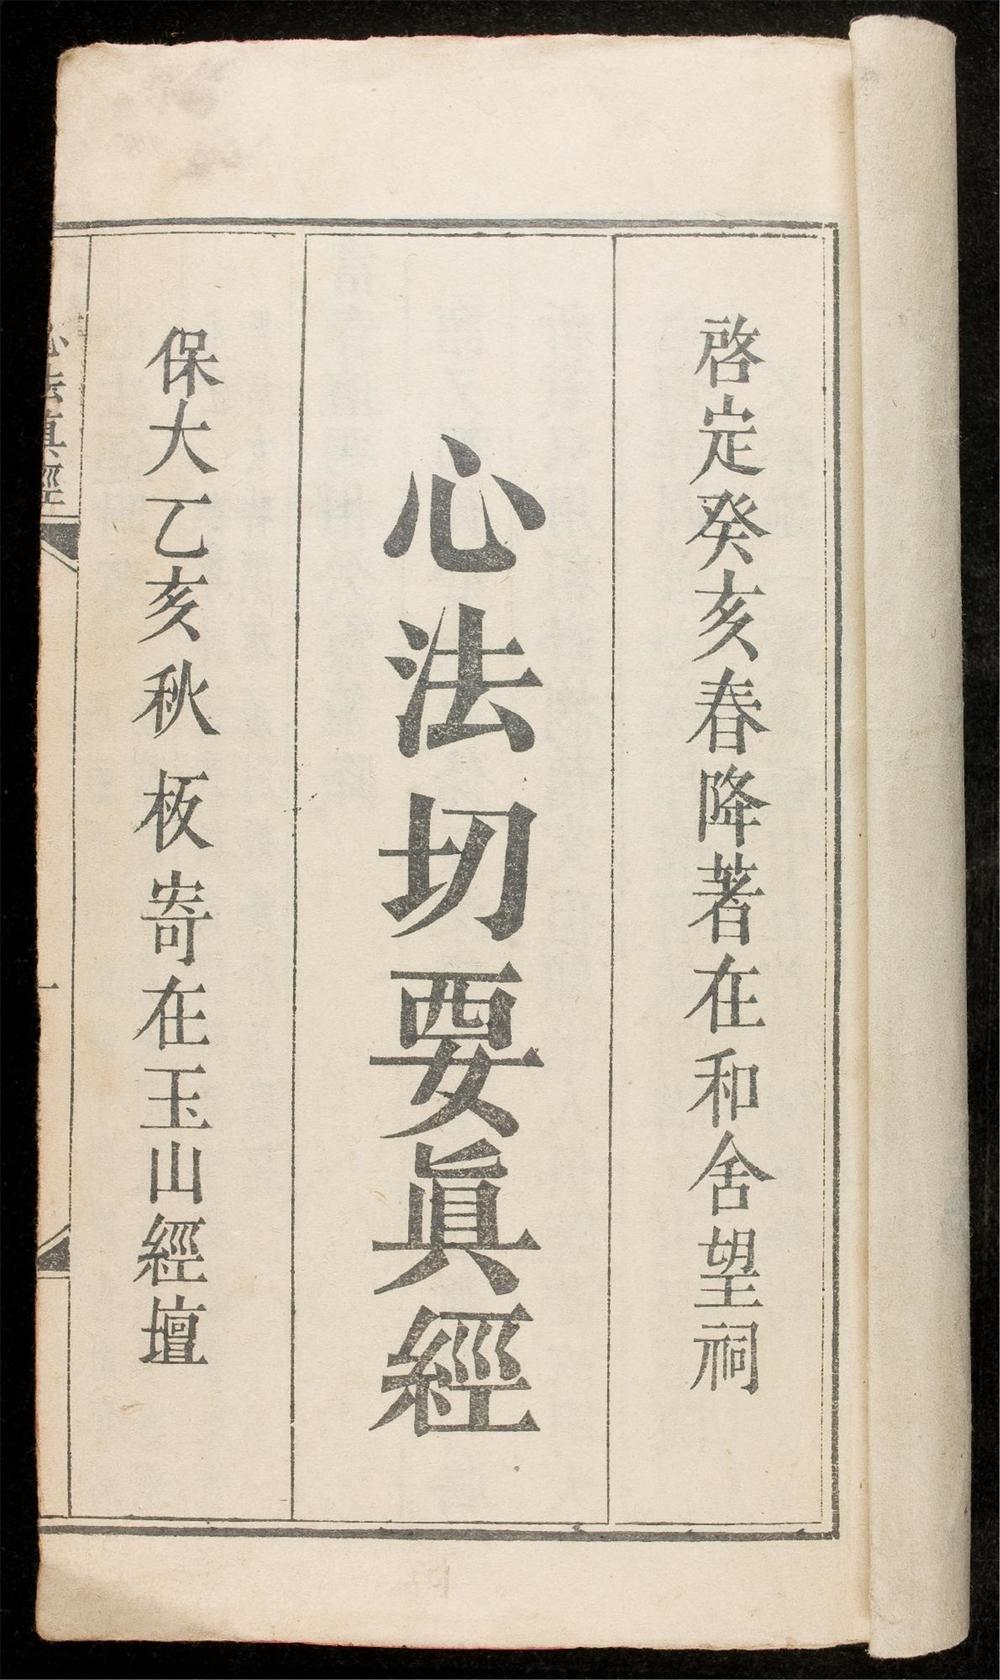 啓定癸亥春降著在和舍望祠
心法切要眞經
保大乙亥秋板寄在玉山經壇
心法真經